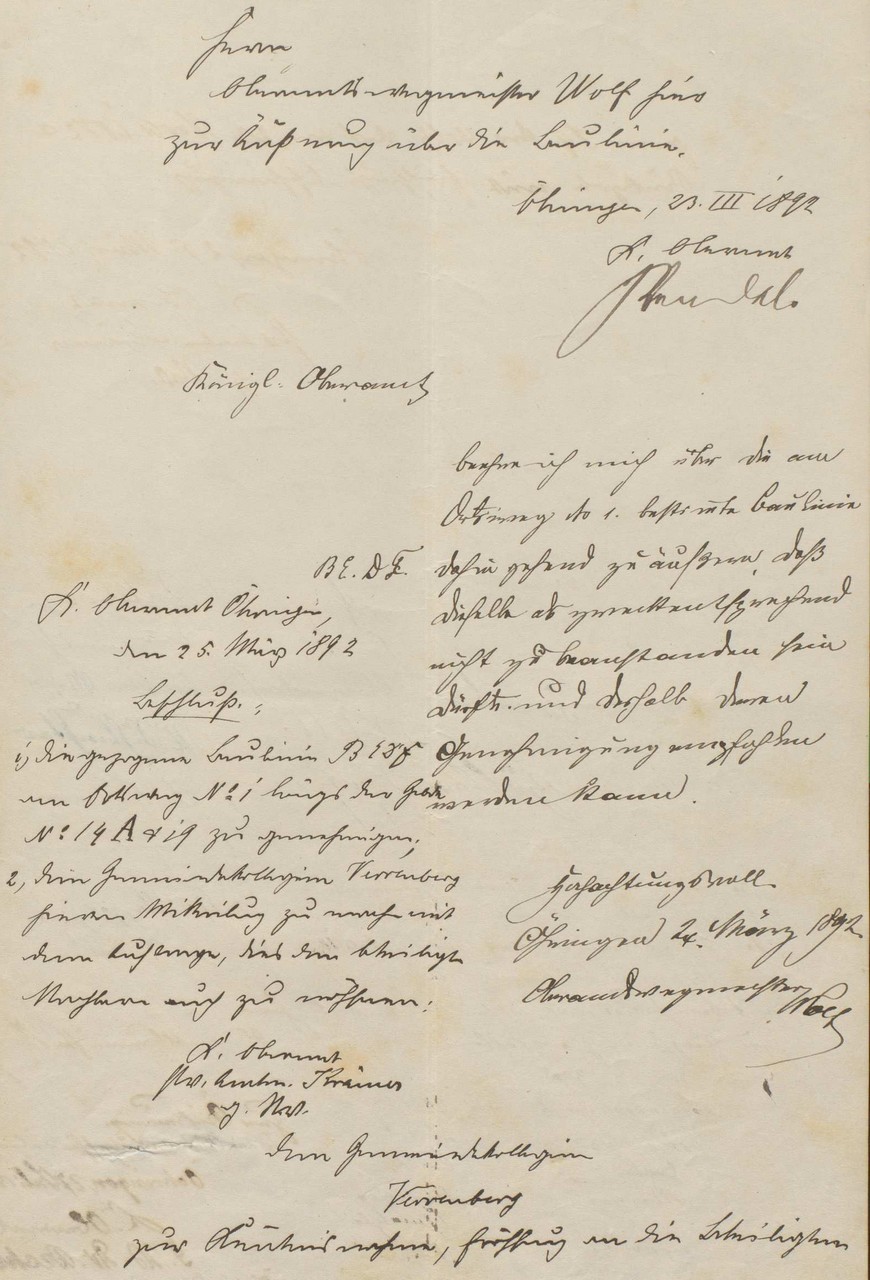 Herrn
Oberamtswegmeister Wolf hier
zur Äußerung über die Baulinie.
Öhringen, 23. III 1892
K. Oberamt
Königl. Oberamt
beehre ich mich über die am
Ortsweg No 1. bestimte Baulinie
dahin gehend zu äußern, daß
dieselbe als zweckentsprechend
nicht zu beanstanden sein
dürfte und deshalb deren
Genehmigung empfohlen
werden kann.
Hochachtungsvoll
Öhringen 24. März 1892
Oberamtswegmeister
Wolf
B E. D F.
K. Oberamt Öhringen,
den 25. März 1892
Beschluß:
1, die gezogene Baulinie B E D F
am Ortsweg No 1 längs der Gebde
No 14 A & 19 zu genehmigen;
2, dem Gemeindekollegium Verrenberg
hievon Mitteilung zu machen mit
dem Auftrage, dies den beteiligten
Nachbarn auch zu eröffnen;
K. Oberamt
stv. Amtm. Krämer
g. Nr.
dem Gemeindekollegium
Verrenberg
zur Kenntnisnahme, Eröffnung an die Beteiligten